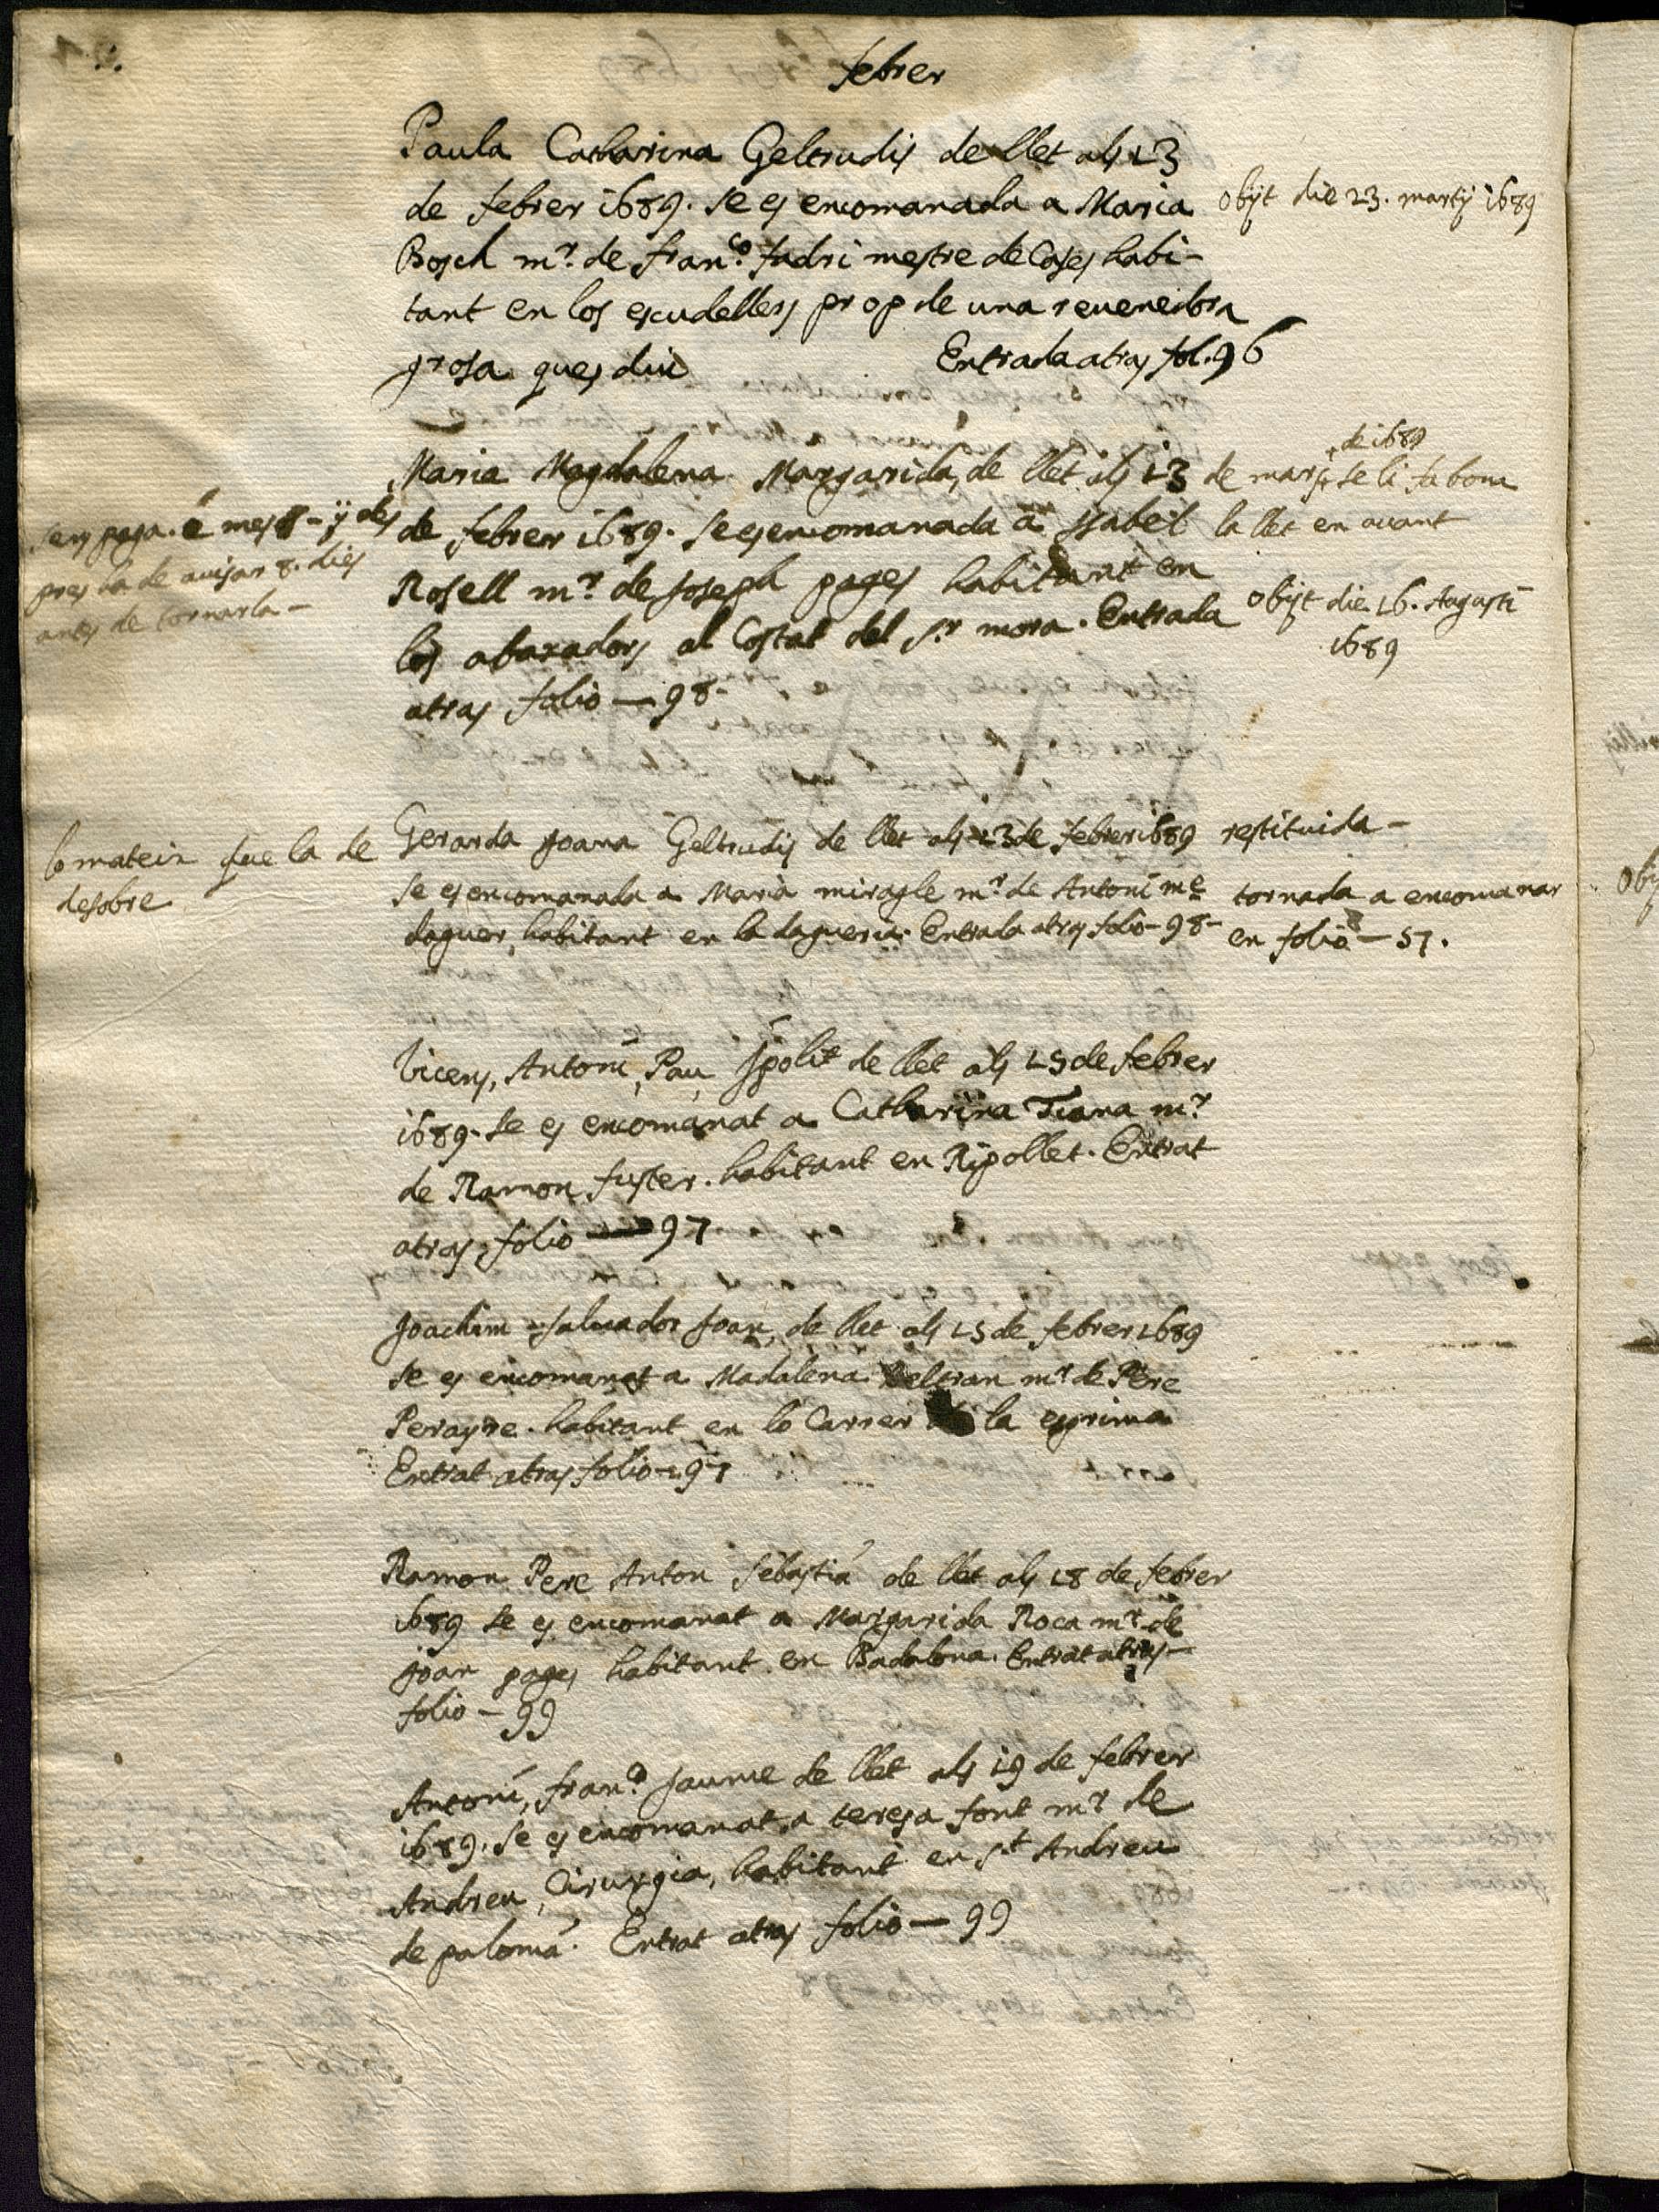 febrer
Paula Catharina Geltrudis de llet als 13
de febrer 1689. se es encomanada a Maria
Bosch mr. de Franco. fadri mestre de Cases habi-
tant en los escudellers prop de una revenedora
grosa ques diu Entrada atras fol. 96
obijt die 23. martij 1689
Maria Magdalena Margarida, de llet als 13
de febrer 1689. se es encomanada a Isabel
Rosell mr. de Joseph pages habitant en
los abaxadors al Costat del Sr. mora. Entrada
atras folio — 98-
sens paga. 6 mesos - y des
pres ha de avisar 8. dies
antes de tornarla -
de 1689
de mars se li fa bona
la llet en avant
obijt die 16. Augusti
1689
lo mateix que la de
desobre
Gerarda Joana Geltrudis de llet als 13 de febrer 1689
se es encomanada a Maria miragle mr. de Antoni me
daguer, habitant en la dagueria. Entrada atras folio - 98-
restituida -
tornada a encomanar
en folio - 57.
Vicens, Antoni, Pau Ipolit de llet als 15 de febrer
1689. se es encomanat a Catharina Tiana mr.
de Ramon fuster. habitant en Ripollet. Entrat
atras folio — 97
Joachim salvador Joan, de llet als 15 de febrer 1689
se es encomanat a Madalena Beltran mr. de Pere
Perayre. habitant en lo Carrer la esgrima
Entrat atras folio - 97
Ramon Pere Anton Sebastiá de llet als 18 de febrer
1689 se es encomanat a Margarida Roca mr. de
Joan pages habitant en Badalona. Entrat atras -
folio - 99
Antoni, Franco. Jaume de llet als 19 de febrer
1689. se es encomanat a teresa font mr. de
Andreu, Cirurgia, habitant en St. Andreu
de palomá. Entrat atras folio — 99